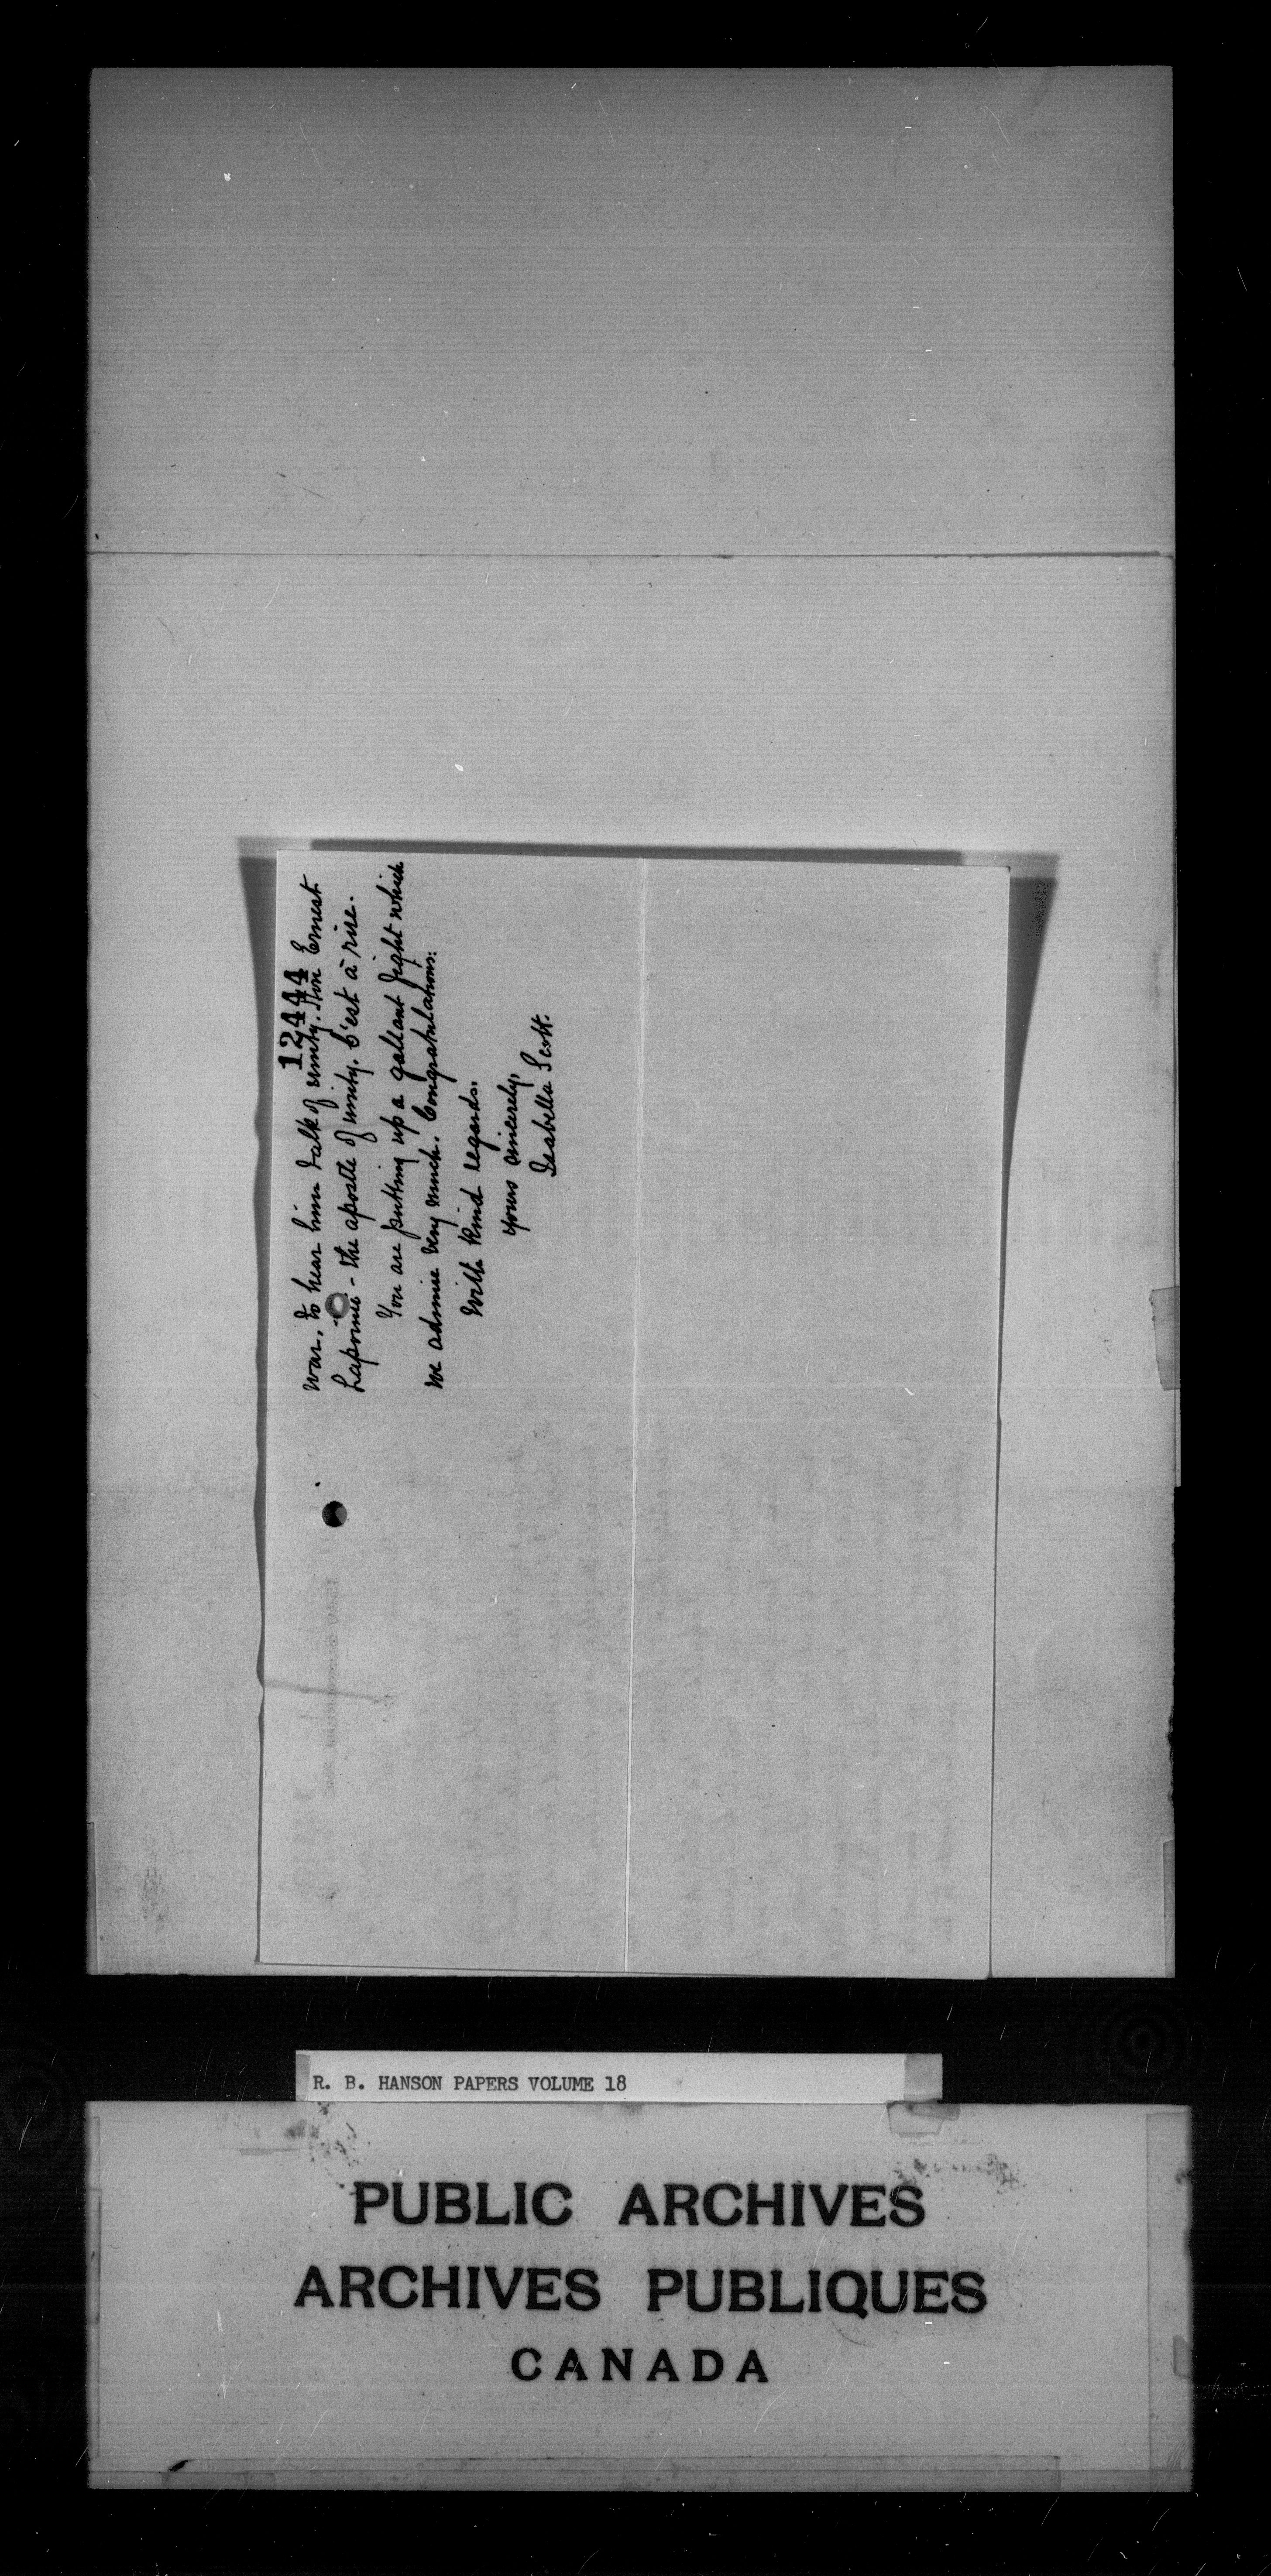 12444
war, to hear him talk of unity. Hon Ernest
Lapointe - the apostle of unity. C'est à rire.
You are putting up a gallant fight which
we admire very much. Congratulations.
With kind regards.
Yours sincerely,
Isabella Scott.
R. B. HANSON PAPERS VOLUME 18
PUBLIC ARCHIVES
ARCHIVES PUBLIQUES
CANADA